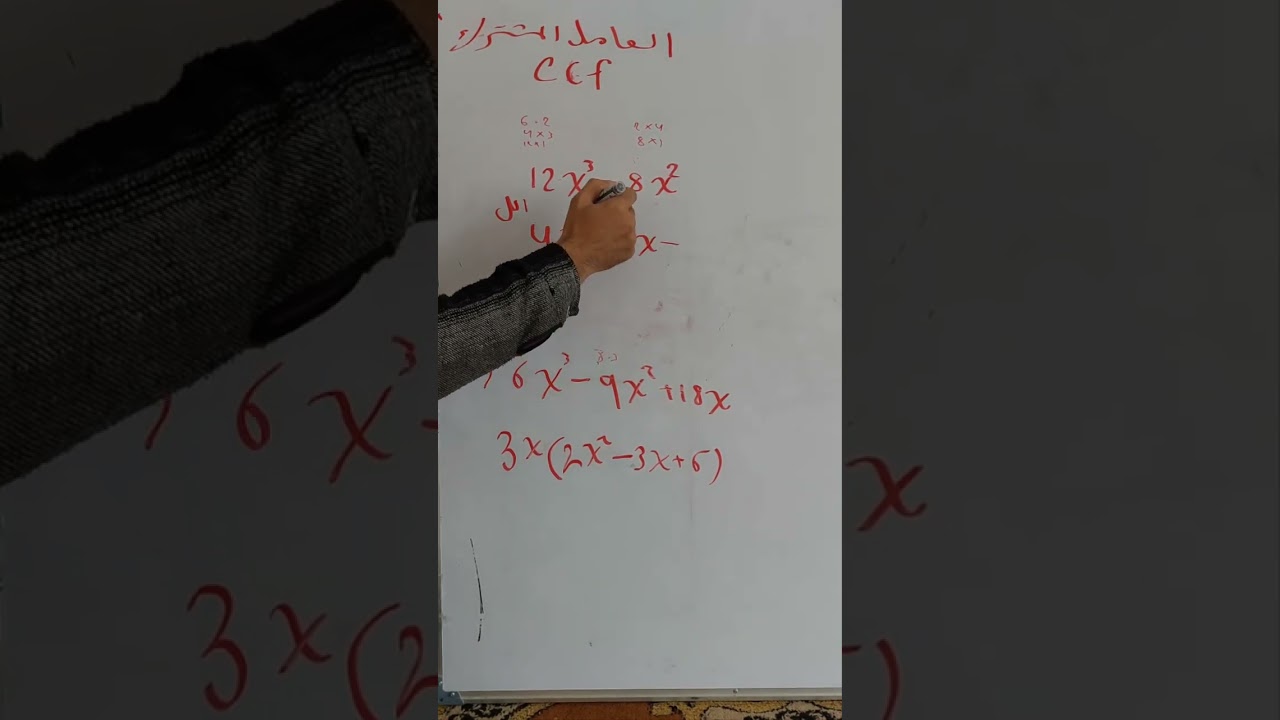 العامل المشترك
CCf
6 · 2 2 × 4
4 × 3 8 × 1
12 × 1
12x³ 8x²
4 x –
6x³ – 9x² + 18x
3x(2x² – 3x + 6)